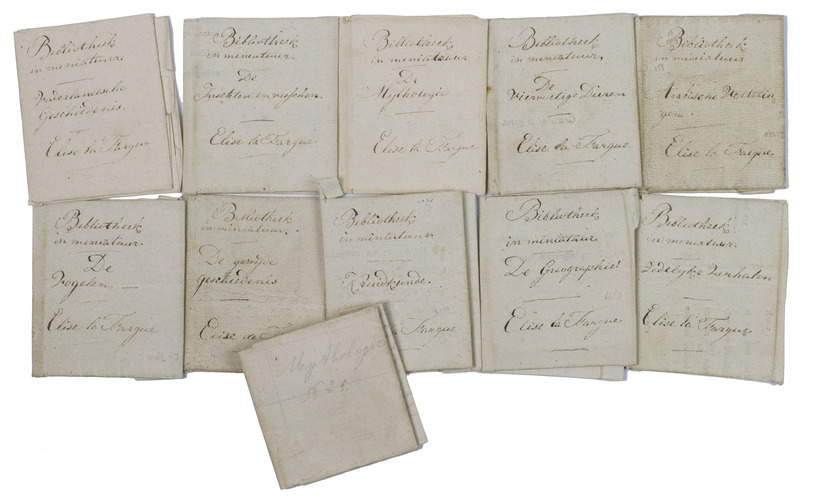 Bibliotheek
in meniatuur.
Vaderlandsche
Geschiedenis.
Elise la Fargue
Bibliotheek
in meniatuur.
De
Insekten en visschen.
Elise la Fargue
Bibliotheek
in meniatuur
De
Mythologie
Elise la Fargue
Bibliotheek
in meniatuur.
De
Viervoetige Dieren
Elise la Fargue
Bibliotheek
in meniatuur
Arabische
Elise la Fargue
Bibliotheek
in meniatuur.
De
Vogelen.
Elise la Fargue
Bibliotheek
in miniatuur.
De gewijde
geschiedenis
Elise la
Bibliotheek
in miniatuur
Kruidkunde.
Fargue
Bibliotheek
in miniatuur.
De Geographie
Elise la Fargue
Bibliotheek
in meniatuur.
Zedelyke Verhalen
Elise la Fargue
Mythologie